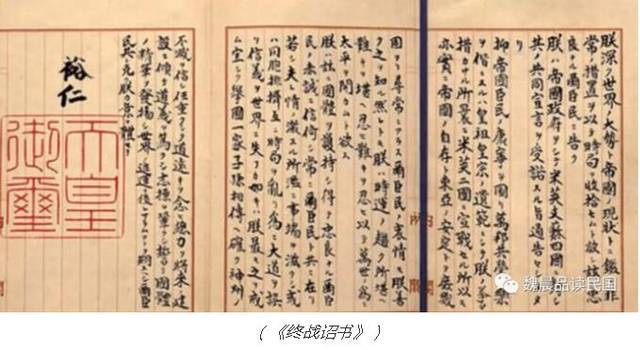 朕深ク世界ノ大勢ト帝國ノ現狀トニ鑑ミ非
常ノ措置ヲ以テ時局ヲ收拾セムト欲シ茲ニ忠
良ナル爾臣民ニ告ク
朕ハ帝國政府ヲシテ米英支蘇四國ニ
其ノ共同宣言ヲ受諾スル旨通告セ
抑帝國臣民ノ康寧ヲ圖リ萬邦共榮ノ樂
ヲ偕ニスルハ皇祖皇宗ノ遺範ニシテ朕ノ拳
措カサル所曩ニ米英二國ニ宣戰セル所以
亦實ニ帝國ノ自存ト東亞ノ安定トヲ庶幾
固ヨリ尋常ニアラス爾臣民ノ衷情モ朕善
ク之ヲ知ル然レトモ朕ハ時運ノ趨ク所堪ヘ
難キヲ堪ヘ忍ヒ難キヲ忍ヒ以テ萬世ノ爲ニ
太平ヲ開カムト欲ス
朕ハ茲ニ國體ヲ護持シ得テ忠良ナル爾臣
民ノ赤誠ニ信倚シ常ニ爾臣民ト共ニ在リ
若シ夫レ情ノ激スル所濫ニ事端ヲ滋クシ或
ハ同胞排擠互ニ時局ヲ亂リ爲ニ大道ヲ誤
リ信義ヲ世界ニ失フカ如キハ朕最モ之ヲ戒
ム宜シク擧國一家子孫相傳ヘ確ク神州ノ
不滅ヲ信シ任重クシテ道遠キヲ念ヒ總力ヲ將來ノ建
設ニ傾ケ道義ヲ篤クシ志操ヲ鞏クシ誓テ國體
ノ精華ヲ發揚シ世界ノ進運ニ後レサラムコトヲ期スヘシ爾臣
民其レ克ク朕カ意ヲ體セヨ
裕仁
天皇
御璽
魏晨品读民国
（《终战诏书》）